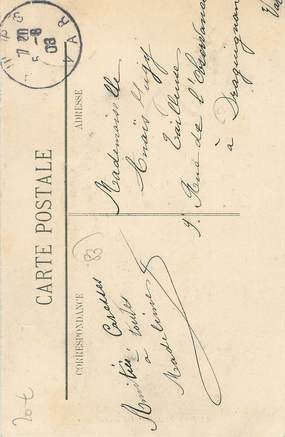 CARTE POSTALE
CORRESPONDANCE
ADRESSE
Amitiés, Caresses
à toutes
Madeleine
Mademoiselle
Anaïs
Tailleuse
Rue de l'Observance
à Draguignan
Var
7 20
5 -8
08
VAR
(83)
20€